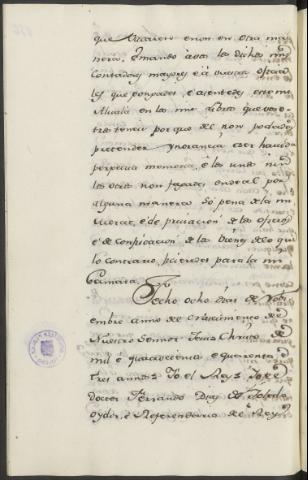 que vacaren en on en otra ma
nera. E mando à vos los dichos mis
Contadores mayores é à vuestros oficia
les que pongades é asentedes este mi
Alvalá en los mis libros que voso
tros teneis por que del non podades
pretender ynorancia é ser havido
perpetua memoria, é los unos nin
los otros non fagades ende al por
alguna manera so pena de la mi
merced, é de privacion de los oficios
é de confiscacion de los bienes de los que
lo contrario ficieredes para la mi
Camara. Fecho ocho dias de Novi
embre anno del Nascimiento de
Nuestro Sennor Jesu Christo de
mil é quatrocientos é quarenta é
tres annos = Yo el Rey = Yo el
Doctor Fernando Diaz de Toledo
oydor é Referendario del Rey